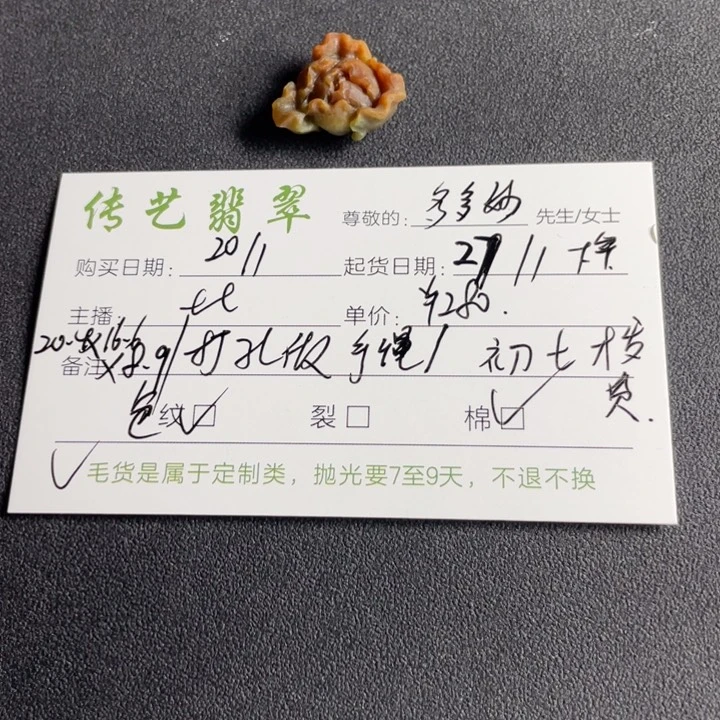 传艺翡翠 尊敬的: 多多妙 先生/女士
购买日期: 20/1 起货日期: 27/1
主播: 七七 单价: ¥280.
备注: 打孔做手绳/初七发货.
色纹 ✓ □ 裂 □ 棉 ✓ □
✓ 毛货是属于定制类，抛光要7至9天，不退不换